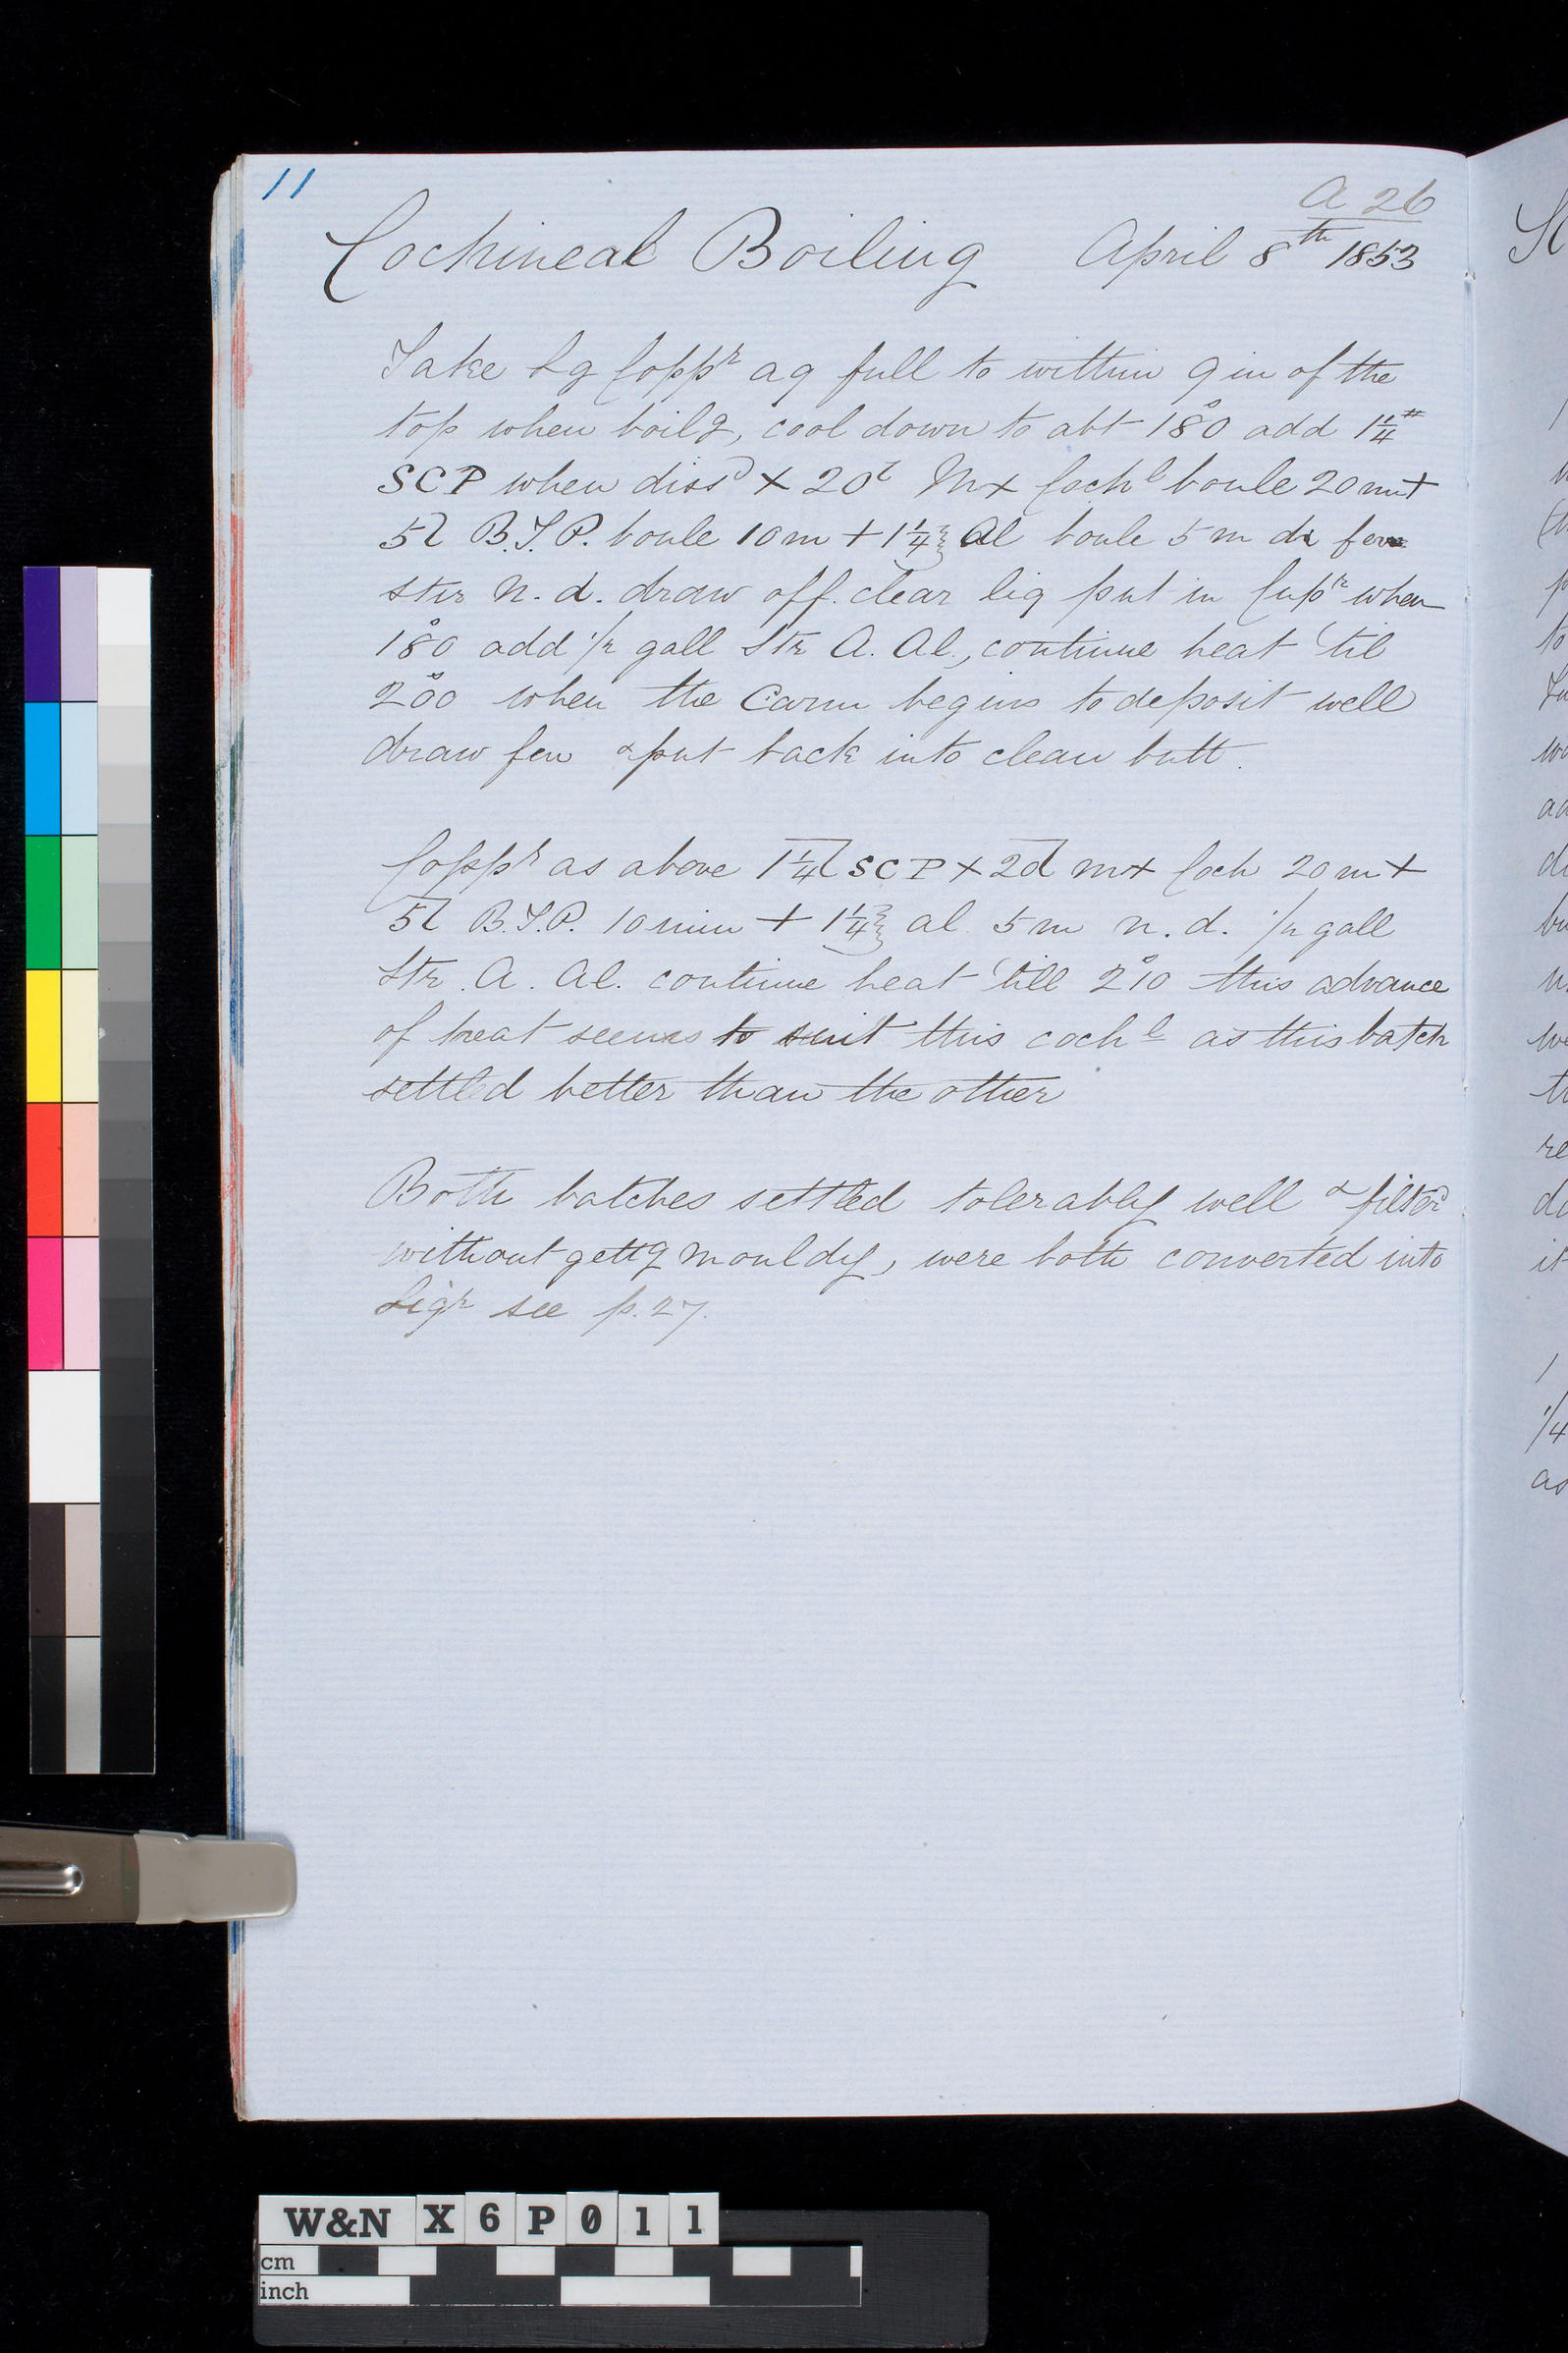 11
A 26
Cochineal Boiling April 8th 1853
Take Lg Coppr aq full to within 9 in of the
top when boilg, cool down to abt 180° add 1 1/4 #
SCP when dissd + 20 Mx Cochl boule 20 m +
5 B.T.P. boule 10 m + 1 1/4 ℥ Al boule 5 m
stir N. d. draw off. clear liq put in Cupr when
180° add 1/2 gall Str A. Al., continue heat 'til
200° when the Carm begins to deposit well
draw &put back into clean butt.
Coppr as above 1 1/4 SCP + 20 mx Coch 20 m +
5 B.T.P. 10 min + 1 1/4 ℥ al 5 m n. d. 1/2 gall
Str. A. Al. continue heat 'till 210° this advance
of heat seems to suit this cochl as this batch
settled better than the other
Both batches settled tolerably well & filterd
without gettg mouldy, were both converted into
Liqr see p. 27.
W&N X6P011
cm
inch